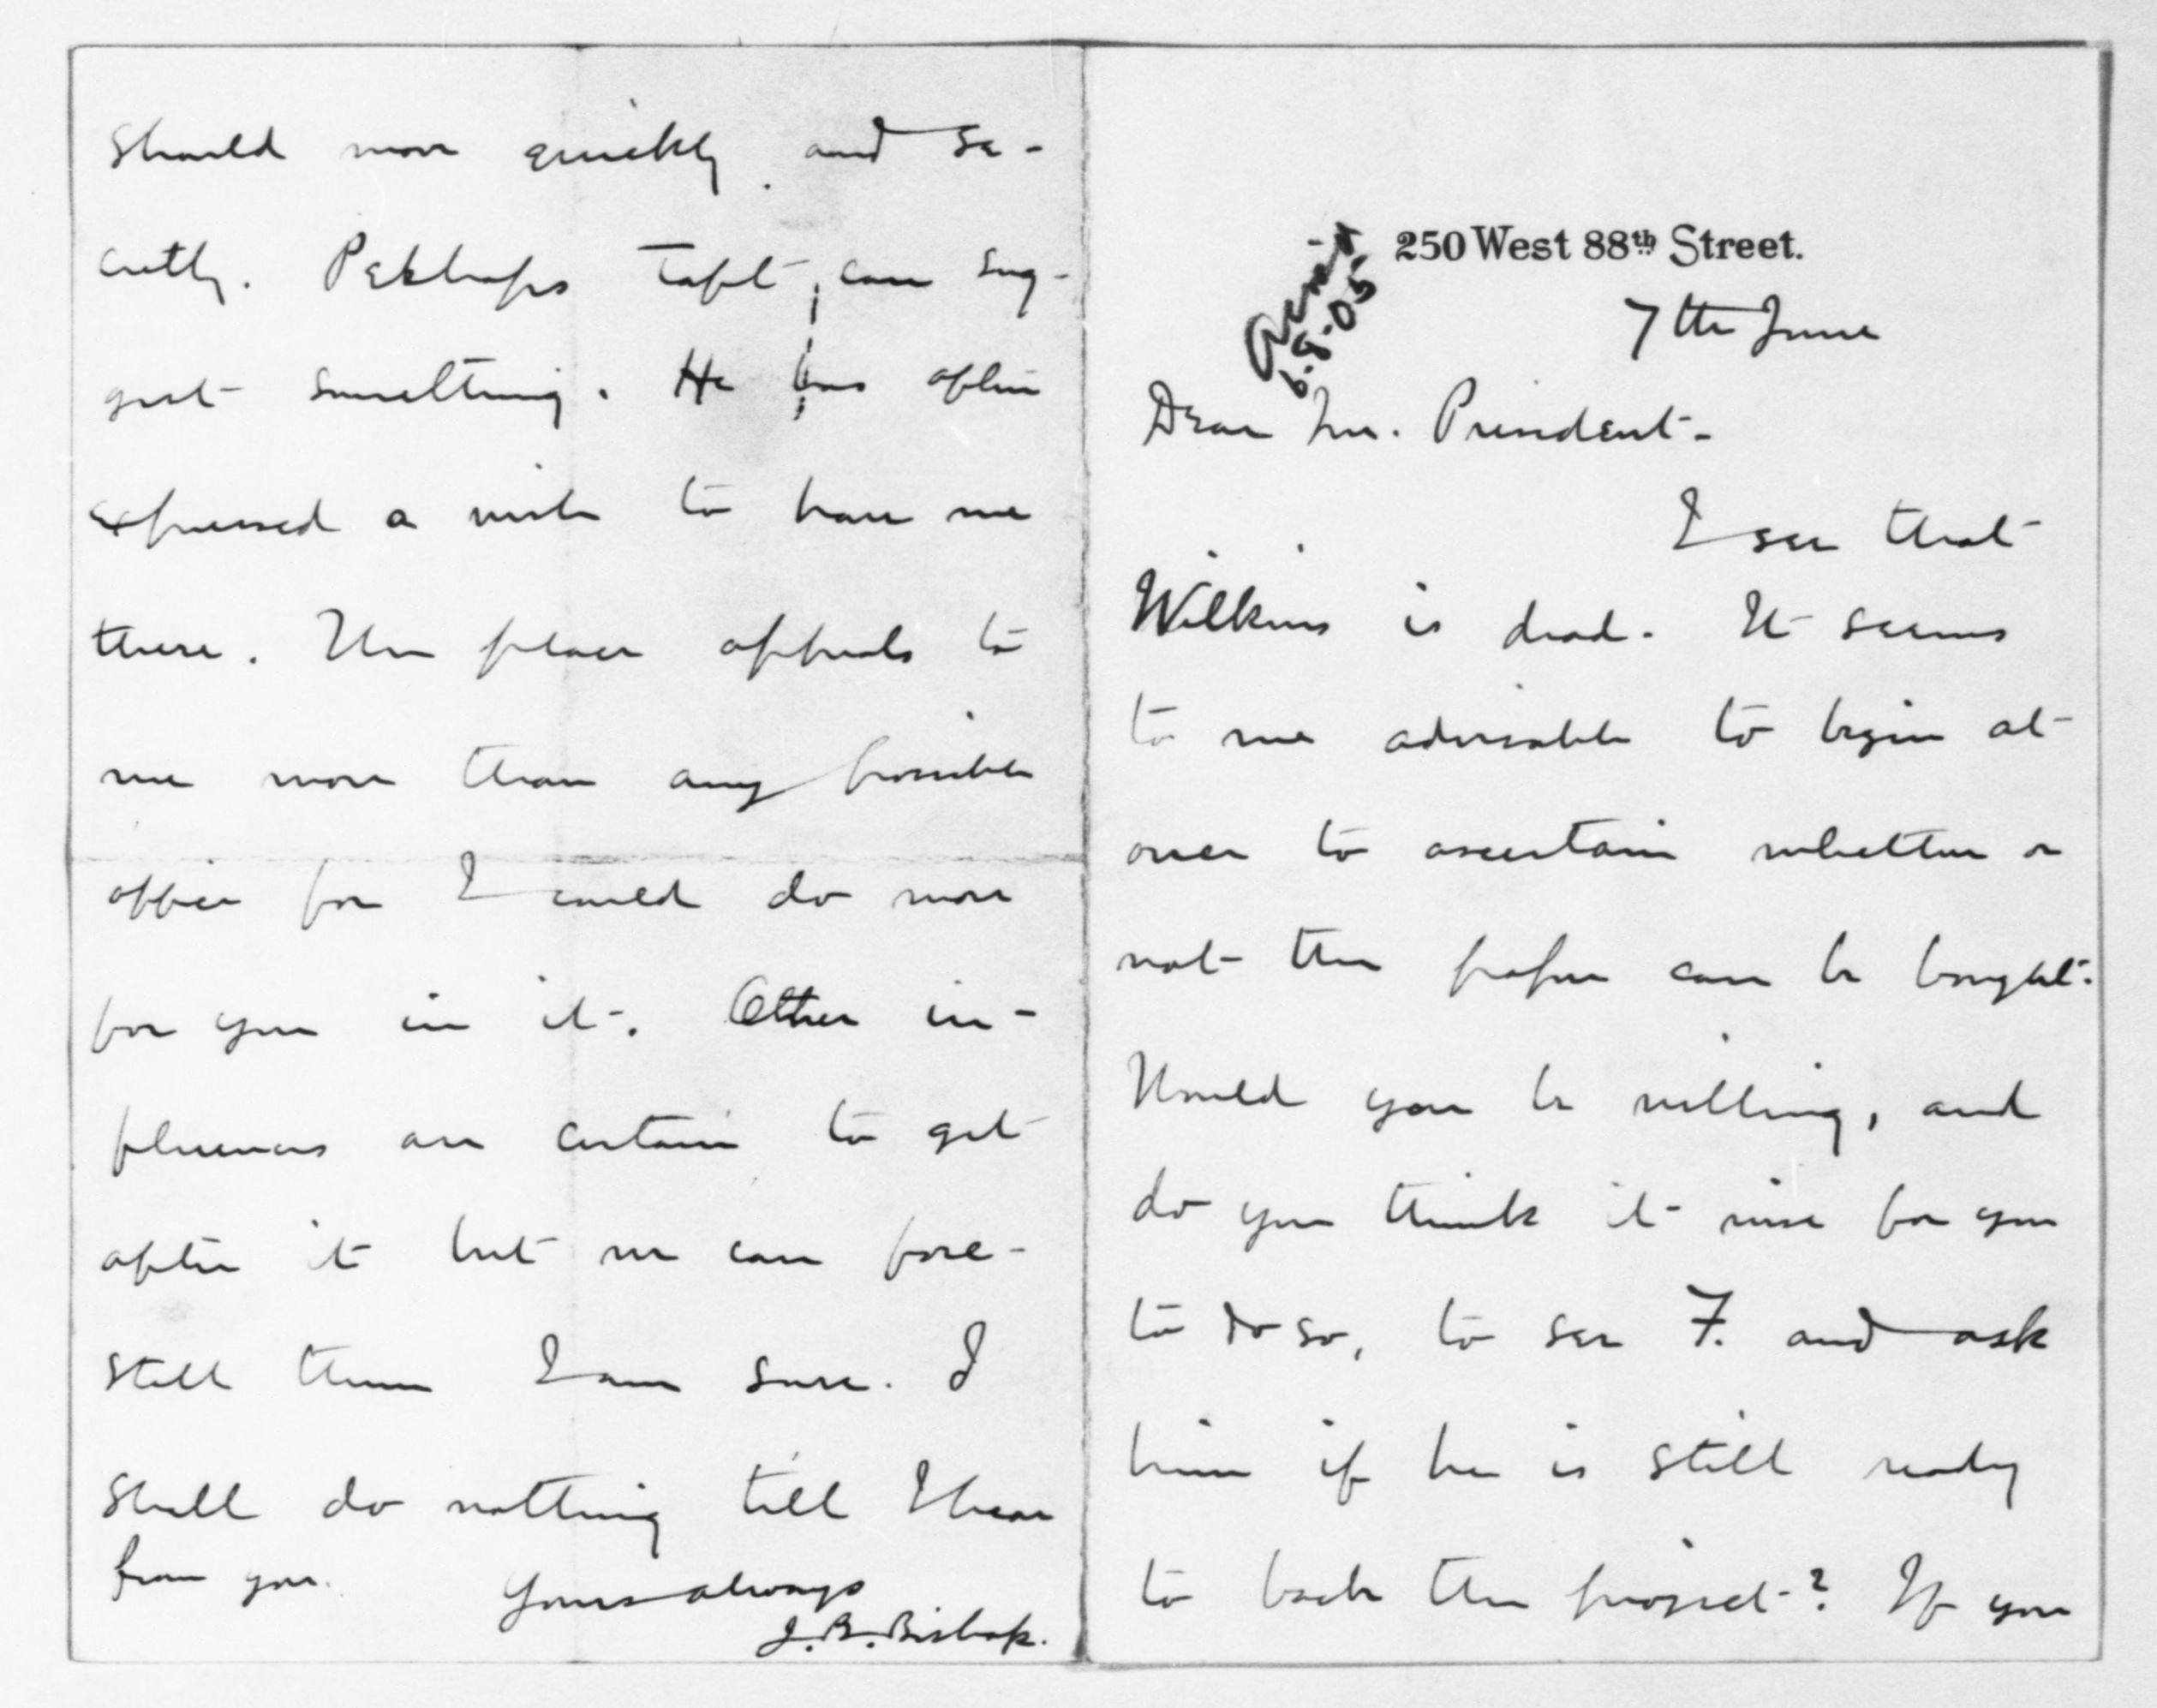 250 West 88th Street.
Ackn'd
6.8.05
7th June
Dear Mr. President-
I see that
Wilkins is dead. It seems
to me advisable to begin at
once to ascertain whether or
not the paper can be bought.
Would you be willing, and
do you think it wise for you
to do so, to see F. and ask
him if he is still ready
to back the project? If you
should move quickly and se-
cretly. Perhaps Taft can sug-
gest something. He has often
expressed a wish to have me
there. The place appeals to
me more than any possible
office for I could do more
for you in it. Other in-
fluences are certain to get
after it but we can fore-
stall them I am sure. I
shall do nothing till I hear
from you.
Yours always
J.B. Bishop.